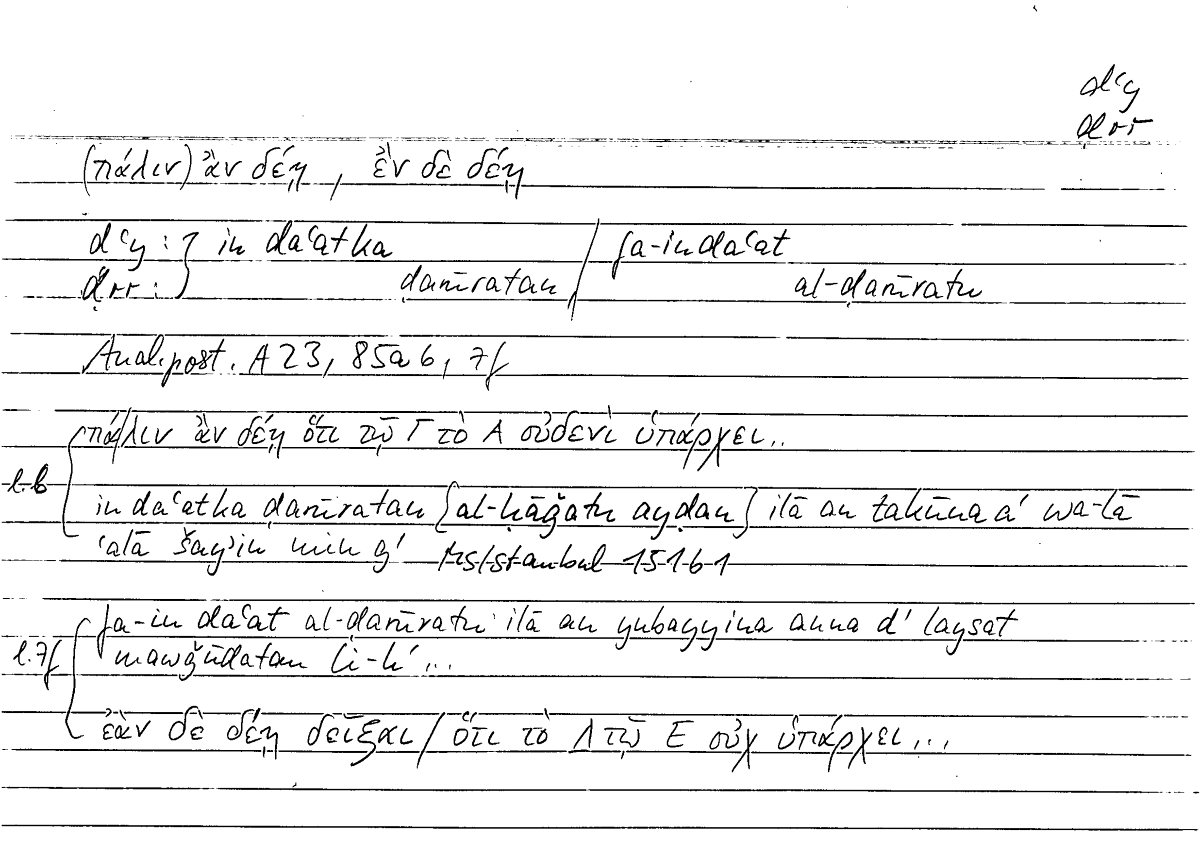 dʿy
ḍrr
(πάλιν) ἂν δέῃ, ἐὰν δὲ δέῃ
dʿy : } in daʿatka / fa-in daʿat
ḍrr : ḍarūratan / al-ḍarūratu
Anal.post. A 23, 85a6, 7f
πάλιν ἂν δέῃ ὅτι τῷ Γ τὸ Α οὐδενὶ ὑπάρχει..
l.6
in daʿatka ḍarūratan {al-ḥāǧatu ayḍan} ilā an takūna a' wa-lā
ʿalā šayʾin min ǧ' Ms Istanbul 15161
fa-in daʿat al-ḍarūratu ilā an yubayyina anna d' laysat
l.7f
mawǧūdatan li-h' ...
ἐὰν δὲ δέῃ δεῖξαι / ὅτι τὸ Δ τῷ Ε οὐχ ὑπάρχει...